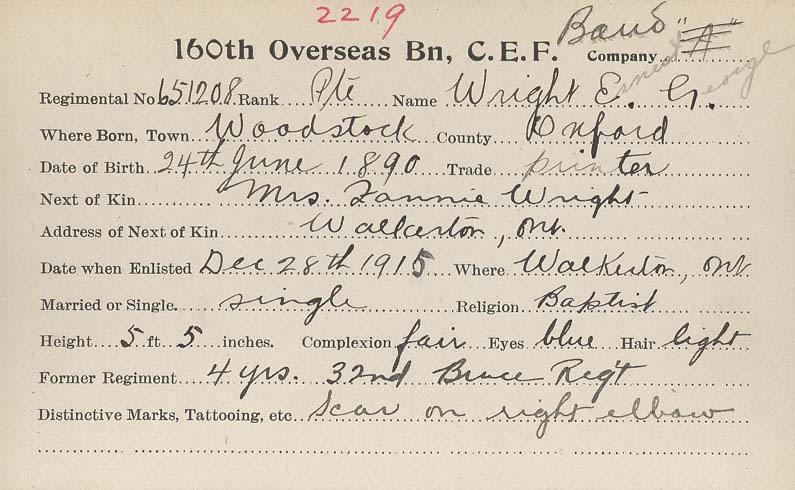 2219
160th Overseas Bn, C.E.F. Band Company "A"
Ernest George
Regimental No 651208 Rank Pte Name Wright E. G.
Where Born, Town Woodstock County Oxford
Date of Birth 24th June 1890 Trade printer
Next of Kin Mrs. Fannie Wright
Address of Next of Kin Walkerton, Ont.
Date when Enlisted Dec 28th 1915 Where Walkerton, Ont
Married or Single. single Religion Baptist
Height 5 ft 5 inches. Complexion fair Eyes blue Hair light
Former Regiment 4 yrs. 32nd Bruce Reg't
Distinctive Marks, Tattooing, etc Scar on right elbow